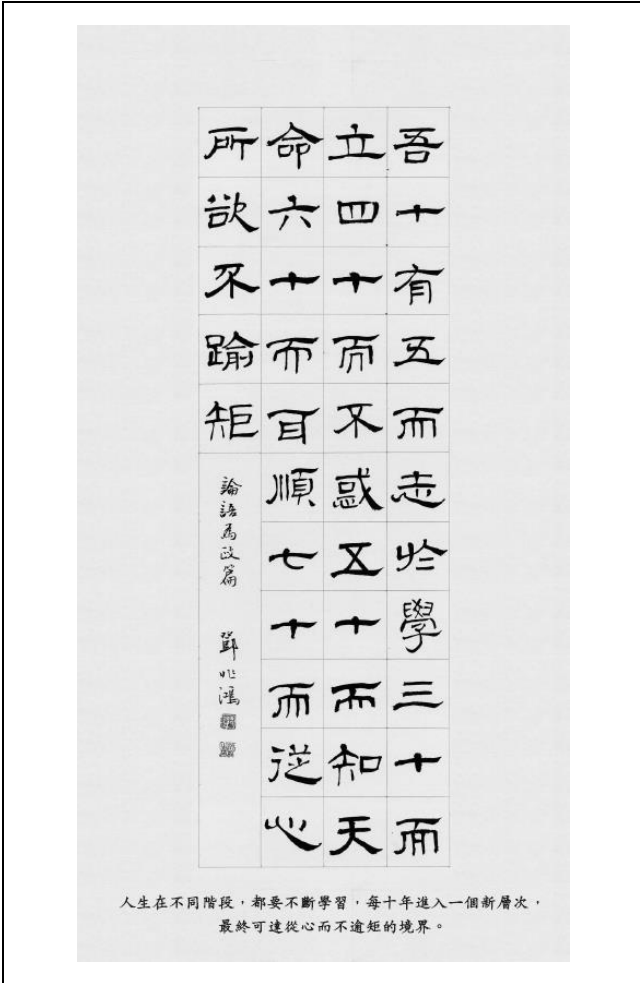 吾十有五而志於學三十而
立四十而不惑五十而知天
命六十而耳順七十而從心
所欲不踰矩
論語為政篇 鄧兆鴻
人生在不同階段，都要不斷學習，每十年進入一個新層次，
最終可達從心而不逾矩的境界。